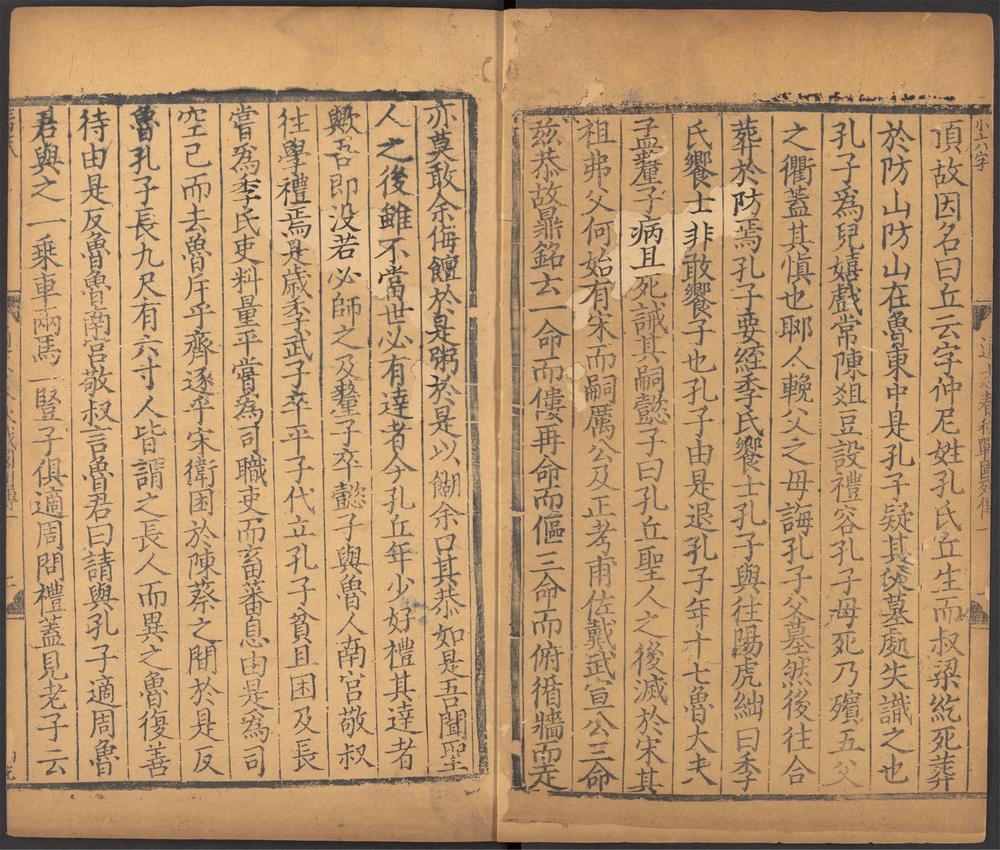 小六字
通志春秋戰國列傳
頂故因名曰丘云字仲尼姓孔氏丘生而叔梁紇死葬
於防山防山在魯東中是孔子疑其父墓處失識之也
孔子爲兒嬉戲常陳爼豆設禮容孔子母死乃殯五父
之衢蓋其愼也郰人輓父之母誨孔子父墓然後往合
葬於防焉孔子要絰季氏饗士孔子與往陽虎絀曰季
氏饗士非敢饗子也孔子由是退孔子年十七魯大夫
孟釐子病且死誡其嗣懿子曰孔丘聖人之後滅於宋其
祖弗父何始有宋而嗣厲公及正考甫佐戴武宣公三命
茲恭故鼎銘云一命而僂再命而傴三命而俯循牆而走
亦莫敢余侮饘於是粥於是以餬余口其恭如是吾聞聖
人之後雖不當世必有達者今孔丘年少好禮其達者
歟吾即没若必師之及釐子卒懿子與魯人南宮敬叔
往學禮焉是歲季武子卒平子代立孔子貧且困及長
嘗爲季氏吏料量平嘗爲司職吏而畜蕃息由是爲司
空已而去魯斥乎齊逐乎宋衛困於陳蔡之間於是反
魯孔子長九尺有六寸人皆謂之長人而異之魯復善
待由是反魯魯南宮敬叔言魯君曰請與孔子適周魯
君與之一乘車兩馬一豎子俱適周問禮蓋見老子云